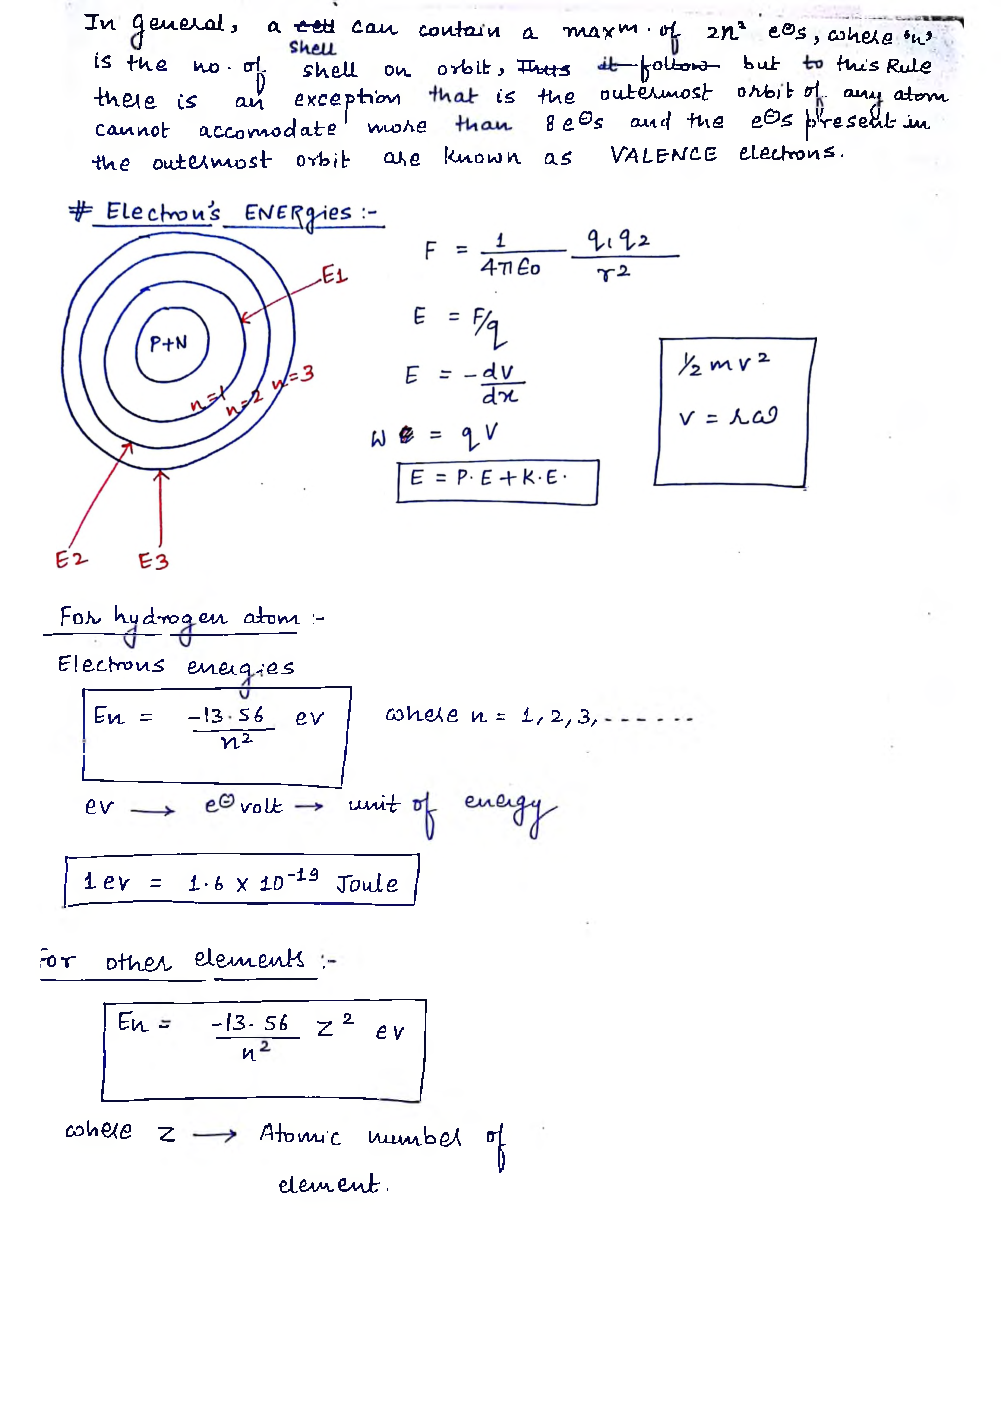 In general, a cell can contain a maxm. of 2n² e⊖s, where 'n'
shell
is the no. of shell or orbit, Thus it follow but to this Rule
there is an exception that is the outermost orbit of any atom
cannot accomodate more than 8 e⊖s and the e⊖s present in
the outermost orbit are known as VALENCE electrons.
# Electron's ENERgies :-
F = 1/4π€0 q1q2/r2
E1
E = F/q
P+N
½ mv²
E = -dv/dx
n=1 n=2 n=3
v = rω
W = qV
E = P.E + K.E.
E2 E3
For hydrogen atom :-
Electrons energies
En = -13.56/n² ev where n = 1, 2, 3, ------
ev → e⊖ volt → unit of energy
1 ev = 1.6 x 10⁻¹⁹ Joule
For other elements :-
En = -13.56/n² Z² ev
where Z → Atomic number of
element.